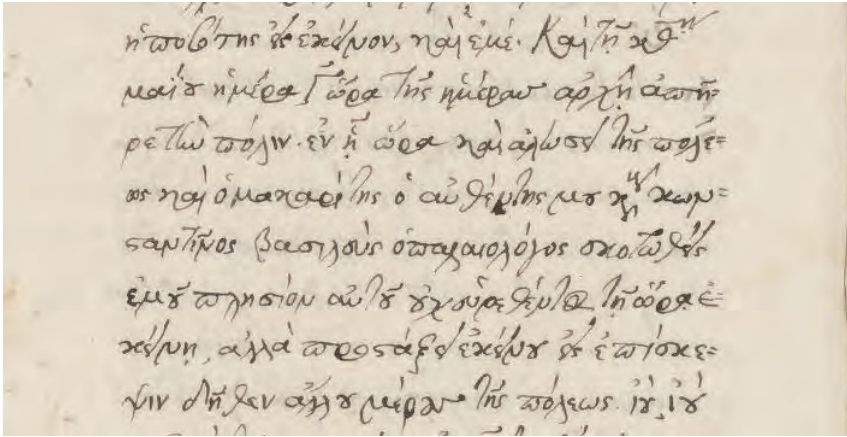 εἰς ἐκεῖνον, καὶ ἐμέ. Καὶ τῇ κθῃ
μαΐου ἡμέρα Γ ὥρα τῆς ἡμέρας ἀρχῇ ἀπῆ=
ρε τὴν πόλιν. ἐν ᾗ ὥρα καὶ ἁλώσει τῆς πόλε=
ως καὶ ὁ μακαρίτης ὁ αὐθέντης μου κῦρ κων=
σταντῖνος βασιλεὺς ὁ παλαιολόγος σκοτωθεὶς
ἐμοῦ πλησίον αὐτοῦ οὐχ εὑρεθέντος τῇ ὥρᾳ ἐ=
κείνῃ, ἀλλὰ προστάξει ἐκείνου εἰς ἐπίσκε=
ψιν δῆθεν ἄλλου μέρους τῆς πόλεως. ἰού, ἰού